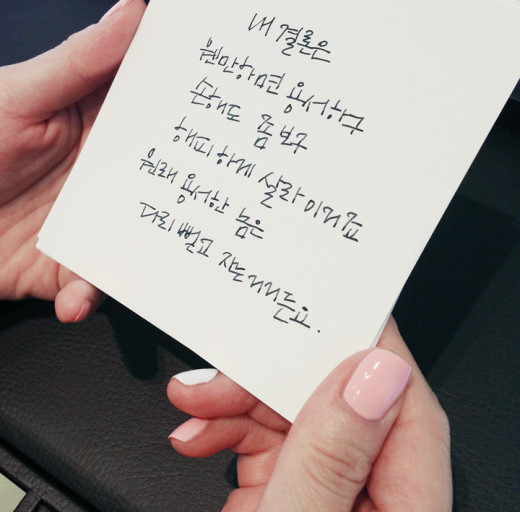 내 결론은
웬만하면 용서하구
손해도 좀 보구
해피하게 살라 이거죠
원래 용서한 놈은
다리 뻗고 자는거거든요.